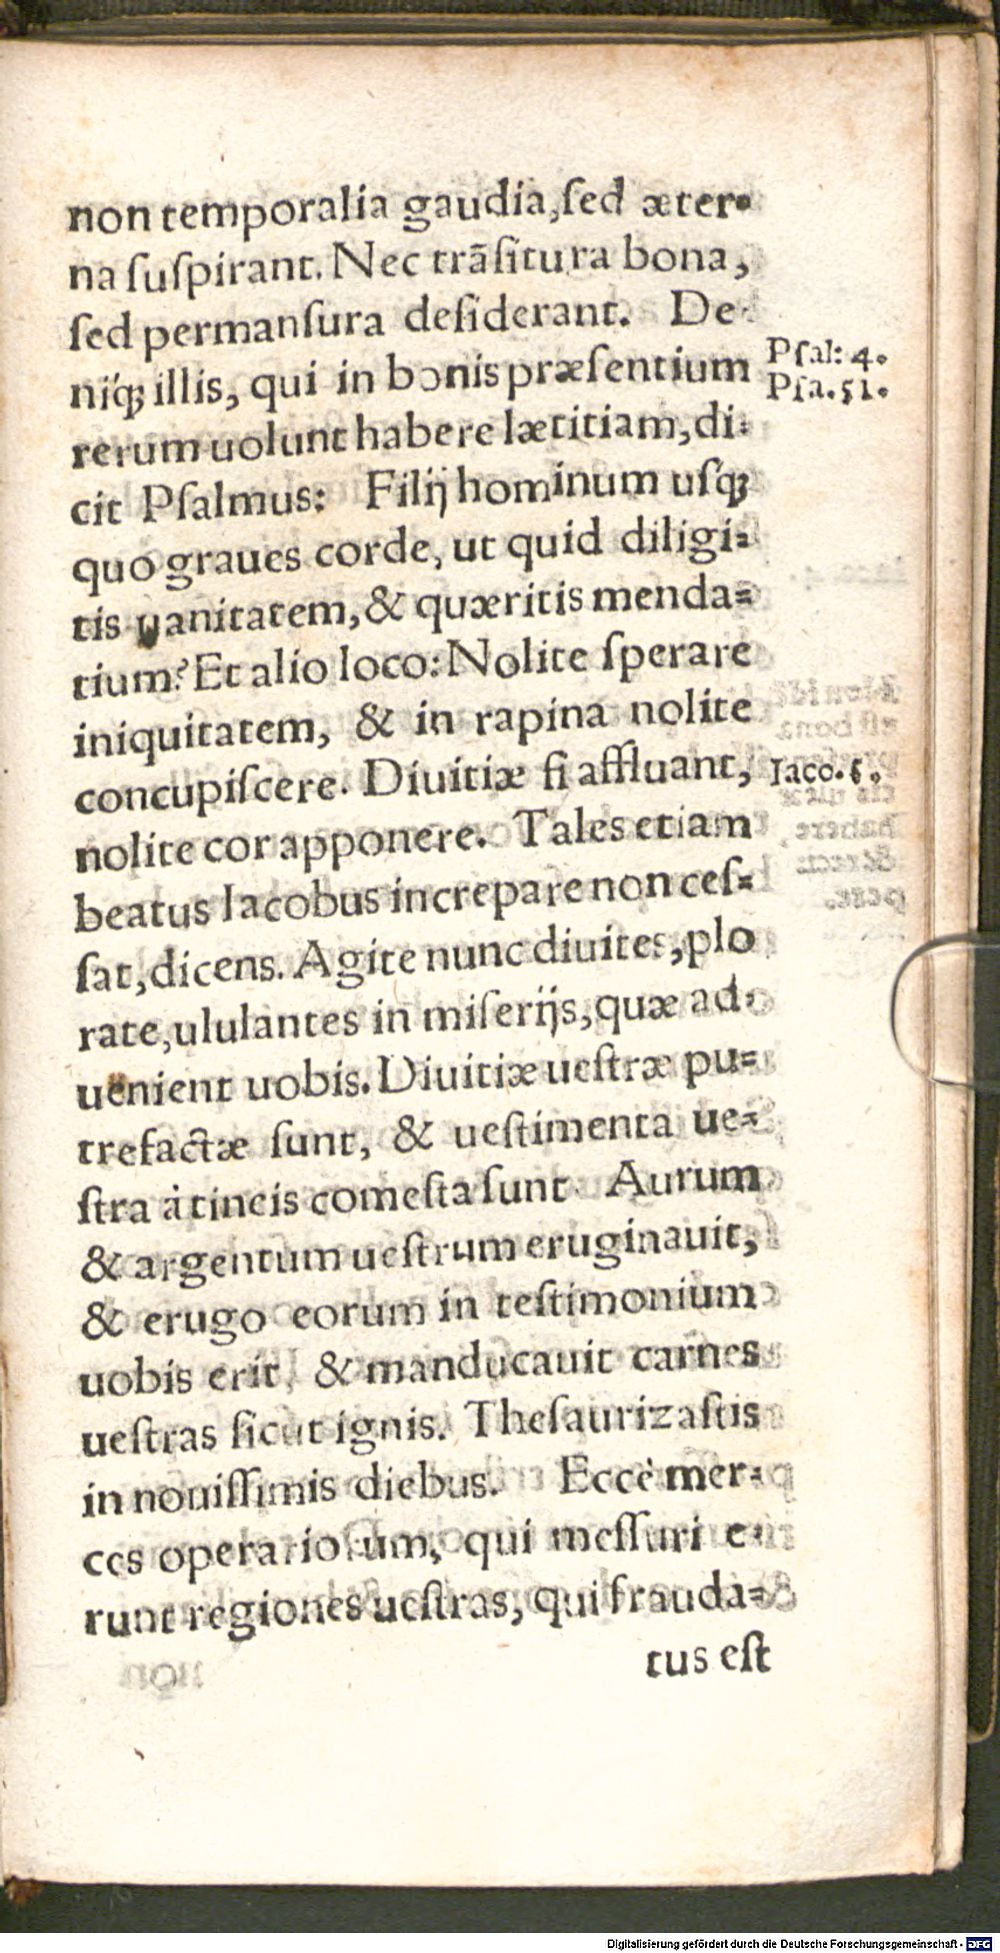 non temporalia gaudia, ſed æter-
na ſuſpirant. Nec trãſitura bona,
ſed permanſura deſiderant. De-
niq́ꝫ illis, qui in bonis præſentium
Pſal: 4.
Pſa. 51.
rerum uolunt habere lætitiam, di-
cit Pſalmus: Filij hominum uſqꝫ
quo graues corde, ut quid diligi-
tis uanitatem, & quæritis menda-
tium? Et alio loco: Nolite ſperare
iniquitatem, & in rapina nolite
concupiſcere. Diuitiæ ſi affluant,
Iaco. 5.
nolite cor apponere. Tales etiam
beatus Iacobus increpare non ceſ-
ſat, dicens. Agite nunc diuites, plo
rate, ululantes in miſerijs, quæ ad-
uenient uobis. Diuitiæ ueſtræ pu-
trefactæ ſunt, & ueſtimenta ue-
ſtra à tineis comeſta ſunt. Aurum
& argentum ueſtrum eruginauit,
& erugo eorum in teſtimonium
uobis erit, & manducauit carnes
ueſtras ſicut ignis. Theſaurizaſtis
in nouiſſimis diebus. Eccè mer-
ces operariorum, qui meſſuri e-
runt regiones ueſtras, qui frauda-
tus eſt
Digitalisierung gefördert durch die Deutsche Forschungsgemeinschaft - DFG